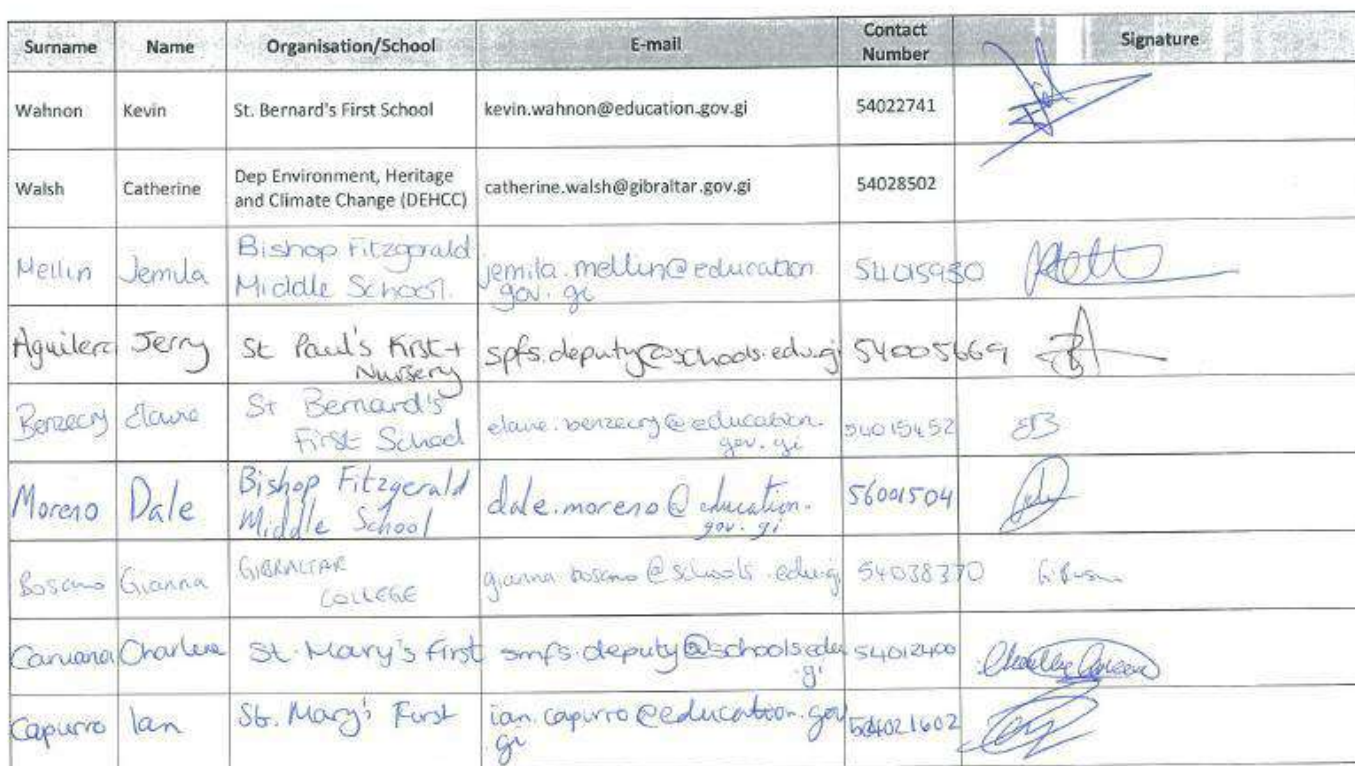 Surname Name Organisation/School E-mail Contact Number Signature
Wahnon Kevin St. Bernard's First School kevin.wahnon@education.gov.gi 54022741
Walsh Catherine Dep Environment, Heritage and Climate Change (DEHCC) catherine.walsh@gibraltar.gov.gi 54028502
Mellin Jemila Bishop Fitzgerald Middle School. jemila.mellin@education gov.gi 54015930
Aguilera Jerry St Paul's First + Nursery spfs.deputy@schools.edu.gi 54005669
Benzecry St Bernard's First School 54015452 EB
Moreno Dale Bishop Fitzgerald Middle School dale.moreno@education.gov.gi 56001504
Bosano Gianna GIBRALTAR COLLEGE gianna.bosano@schools.edu.gi 54038370 G.
Caruana Charlene St. Mary's First smfs.deputy@schools.edu.gi 54012400
Capurro Ian St. Mary's First ian.capurro@education.gov.gi 54021602